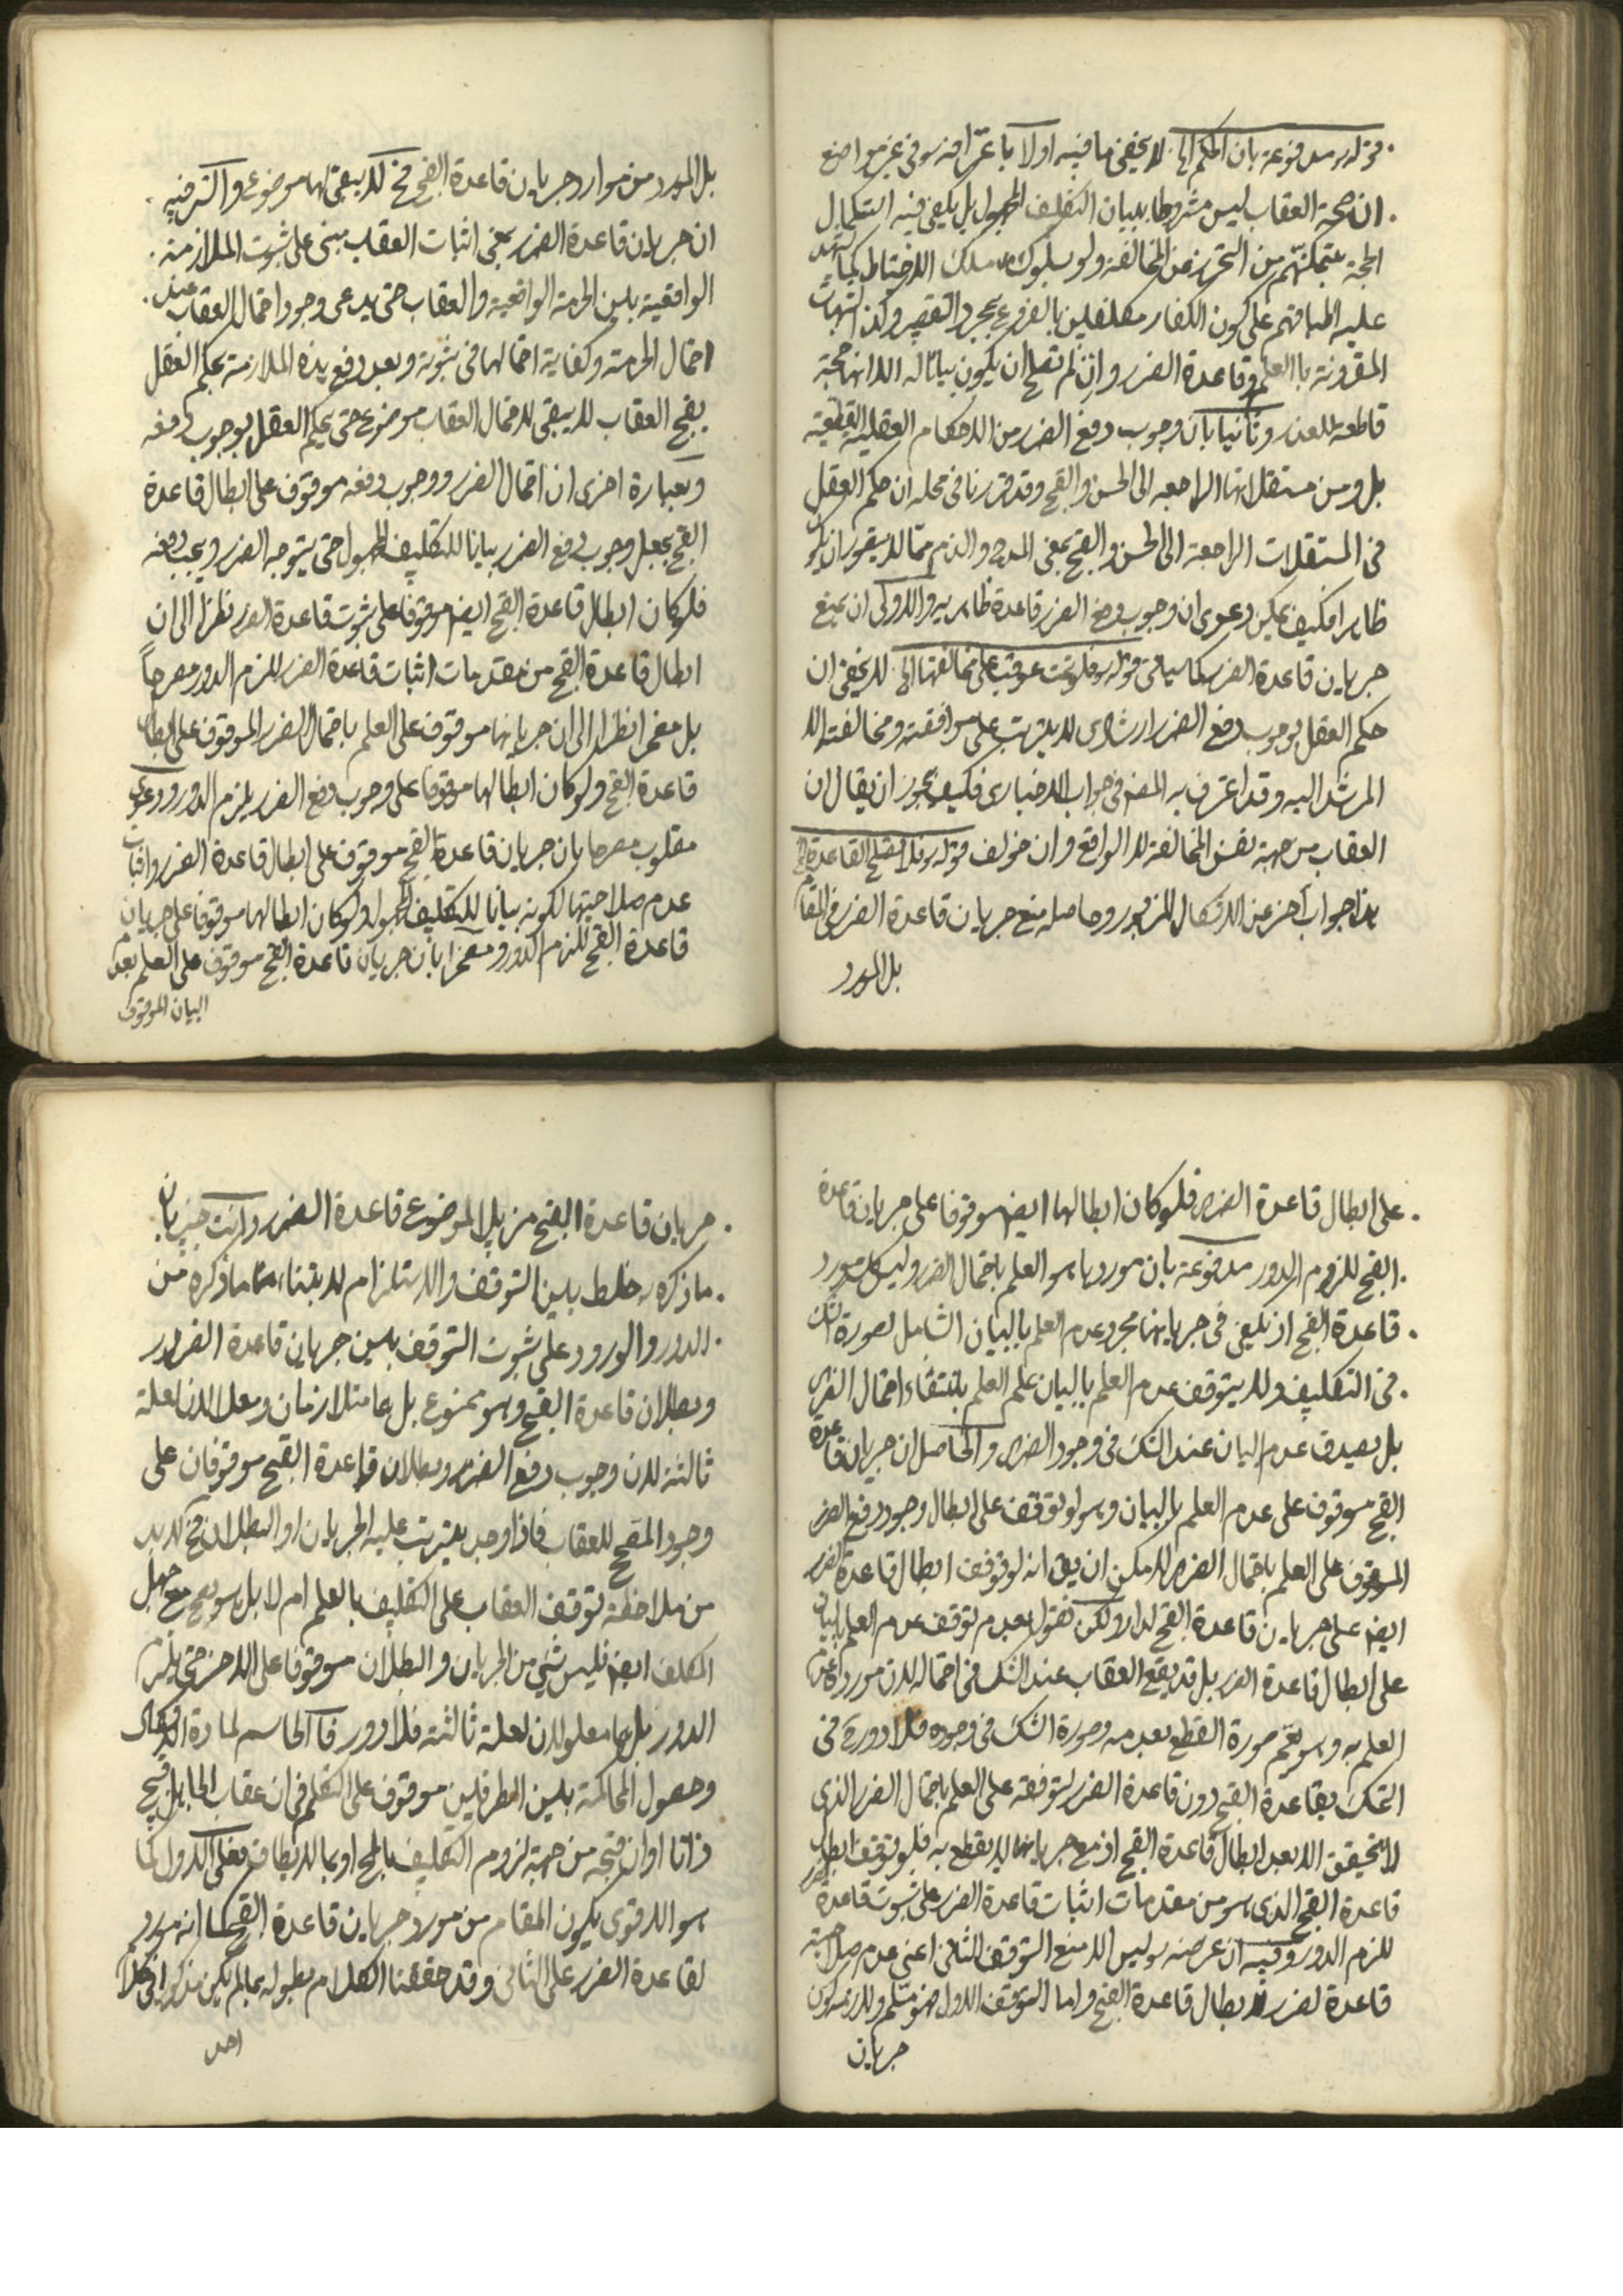 قوله ره مدفوعة بان الحكم الخ لا يخفى ما فيه اولا باعترافه ره فى غير مواضع
ان صحة العقاب ليس مشروطا ببيان التكليف المجهول بل يكفى فيه استكمال
الحجة بتمكنهم من التحرز عن المخالفة ولو بسلوك مسلك الاحتياط كما يشهد
عليه اطباقهم على كون الكفار مكلفين بالفروع بمجرد التقصير وكذا الشبهات
المقرونة بالعلم وقاعدة الضرر وان لم تصلح ان يكون بيانا له الا انها حجة
قاطعة للعذر وثانيا بان وجوب دفع الضرر من الاحكام العقلية القطعية
بل ومن مستقلاتها الراجعه الى الحسن والقبح وقد قررنا فى محله ان حكم العقل
فى المستقلات الراجعة الى الحسن والقبح بمعنى المدح والذم مما لا يتصور ان يكون
ظاهرا فكيف يمكن دعوى ان وجوب دفع الضرر قاعدة ظاهريه والاولى ان يمنع
جريان قاعدة الضرر كما سياتى قوله ره فلو تمت عوقب على مخالفتها الخ لا يخفى ان
حكم العقل بوجوب دفع الضرر ارشادى لا يترتب على موافقته ومخالفته الا
المرشد اليه وقد اعترف به المصنف فى جواب الاخبارى فكيف يجوز ان يقال ان
العقاب من جهة نفس المخالفة لا الواقع وان خولف قوله ره فلا تصلح القاعدة الخ
هذا جواب آخر عن الاشكال المزبور وحاصله منع جريان قاعدة الضرر فى المقام
بل المورد
بل المورد من موارد جريان قاعدة القبح فح لا يبقى لها موضوع والسر فيه
ان جريان قاعدة الضرر يعنى اثبات العقاب مبنى على ثبوت الملازمة
الواقعية بين الحرمة الواقعية والعقاب حتى يدعى وجود احتمال العقاب عند
احتمال الحرمة وكفاية احتمالها فى ثبوته وبعد رفع هذه الملازمة بحكم العقل
بقبح العقاب لا يبقى لاحتمال العقاب موضوع حتى يحكم العقل بوجوب دفعه
وبعبارة اخرى ان احتمال الضرر ووجوب دفعه موقوف على ابطال قاعدة
القبح بجعل وجوب دفع الضرر بيانا للتكليف المجهول حتى يتوجه الضرر ويجب دفعه
فلو كان ابطال قاعدة القبح ايضا موقوفا على ثبوت قاعدة الضرر نظرا الى ان
ابطال قاعدة القبح من مقدمات اثبات قاعدة الضرر للزم الدور مصرحاً
بل مضمرا نظرا الى ان جريانها موقوف على العلم باحتمال الضرر الموقوف على ابطال
قاعدة القبح ولو كان ابطالها موقوفا على وجوب دفع الضرر يلزم الدور ودعوى
مقلوب مصرحا بان جريان قاعدة القبح موقوف على ابطال قاعدة الضرر واثبات
عدم صلاحيتها لكونه بيانا للتكليف المجهول ولو كان ابطالها موقوفا على جريان
قاعدة القبح للزم الدور ومضمرا بان جريان قاعدة القبح موقوف على العلم بعدم
البيان الموقوف
على ابطال قاعدة الضرر فلو كان ابطالها ايضا موقوفا على جريان قاعدة
القبح للزوم الدور مدفوعة بان موردها هو العلم باحتمال الضرر وليس كل مورد
قاعدة القبح اذ يكفى فى جريانها مجرد عدم العلم بالبيان الشامل لصورة الشك
فى التكليف ولا يتوقف عدم العلم بالبيان علم العلم بانتفاء احتمال الضرر
بل يصدق عدم البيان عند الشك فى وجود الضرر والحاصل ان جريان قاعدة
القبح موقوف على عدم العلم بالبيان وهو لو توقف على ابطال وجود دفع الضرر
الموقوف على العلم باحتمال الضرر لا مكن ان يق انه لو توقف ابطال قاعدة الضرر
ايضا على جريان قاعدة القبح لدار ولكن نقول بعدم توقف عدم العلم بالبيان
على ابطال قاعدة الضرر بل قد يقبح العقاب عند الشك فى احتماله لان موردها عدم
العلم به وهو يعم صورة القطع بعدمه وصورة الشك فى وجوده فلا دور ح فى
التمسك بقاعدة القبح دون قاعدة الضرر لتوقفه على العلم باحتمال الضرر الذى
لا يتحقق الا بعد ابطال قاعدة القبح اذ مع جريانها لا يقطع به فلو توقف ابطال
قاعدة القبح الذى هو من مقدمات اثبات قاعدة الضرر على ثبوت قاعدة الضرر
للزم الدور وفيه ان غرضه ره ليس الا منع التوقف الثانى اعنى عدم صلاحية
قاعدة لضرر لابطال قاعدة القبح واما التوقف الاول فهو مسلم ولا ريب كون
جريان
جريان قاعدة القبح مزيل لموضوع قاعدة الضرر وانت خبير بان
ما ذكره ره خلط بين التوقف والاستلزام لابتناء ما ذكره من
الدور والورود على ثبوت التوقف بين جريان قاعدة الضرر
وبطلان قاعدة القبح وهو ممنوع بل هما متلازمان ومعلولان لعلة
ثالثة لان وجوب دفع الضرر وبطلان قاعدة القبح موقوفان على
وجود المقبح للعقاب فاذا وجد يترتب عليه الجريان او البطلان فح لا بد
من ملاحظة توقف العقاب على التكليف بالعلم ام لا بل هو يصح مع جهل
المكلف ايضا فليس شئ من الجريان والبطلان موقوفا على الاخر حتى يلزم
الدور بل هما معلولان لعلة ثالثة فلا دور فالحاسم لمادة الاشكال
وحصول المحاكمة بين الطرفين موقوف على التكلم فى ان عقاب الجاهل قبيح
ذاتا او ان قبحه من جهة لزوم التكليف بالمح او بما لا يطاق فعلى الاول كما
هو الاقوى يكون المقام من مورد جريان قاعدة القبح كما انه مورد
لقاعدة الضرر على الثانى وقد حققنا الكلام بطوله بما لم يكن مذكورا فى كلام
احد